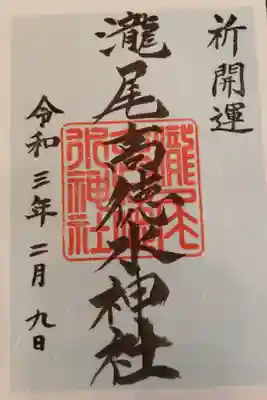 祈開運
瀧尾高德水神社
令和三年二月九日
瀧尾高德水神社